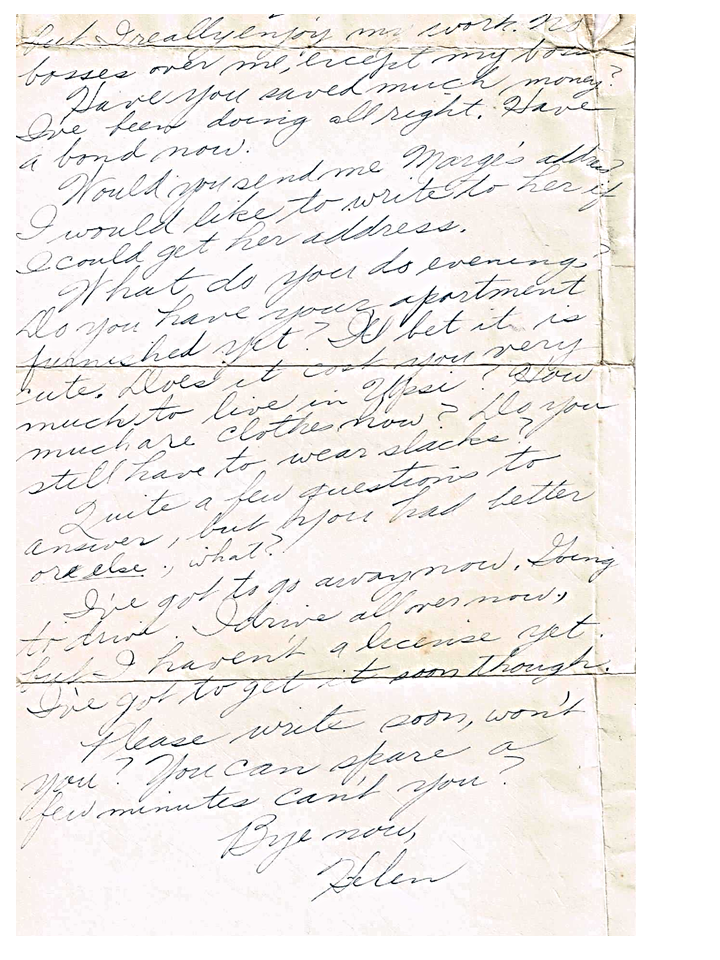 but I really enjoy my work. No
bosses over me, except my boss
Have you saved much money?
I've been doing all right. Have
a bond now.
Would you send me Marge's address
I would like to write to her if
I could get her address.
What do you do evenings?
Do you have your apartment
furnished yet? I'll bet it is
cute. Does it cost you very
much to live in Ypsi? How
much are clothes now? Do you
still have to wear slacks?
Quite a few questions to
answer, but you had better
or else, what?
I've got to go away now. Going
to drive. I drive all over now,
but I haven't a license yet.
I've got to get it soon though.
Please write soon, won't
you? You can spare a
few minutes can't you?
Bye now,
Helen